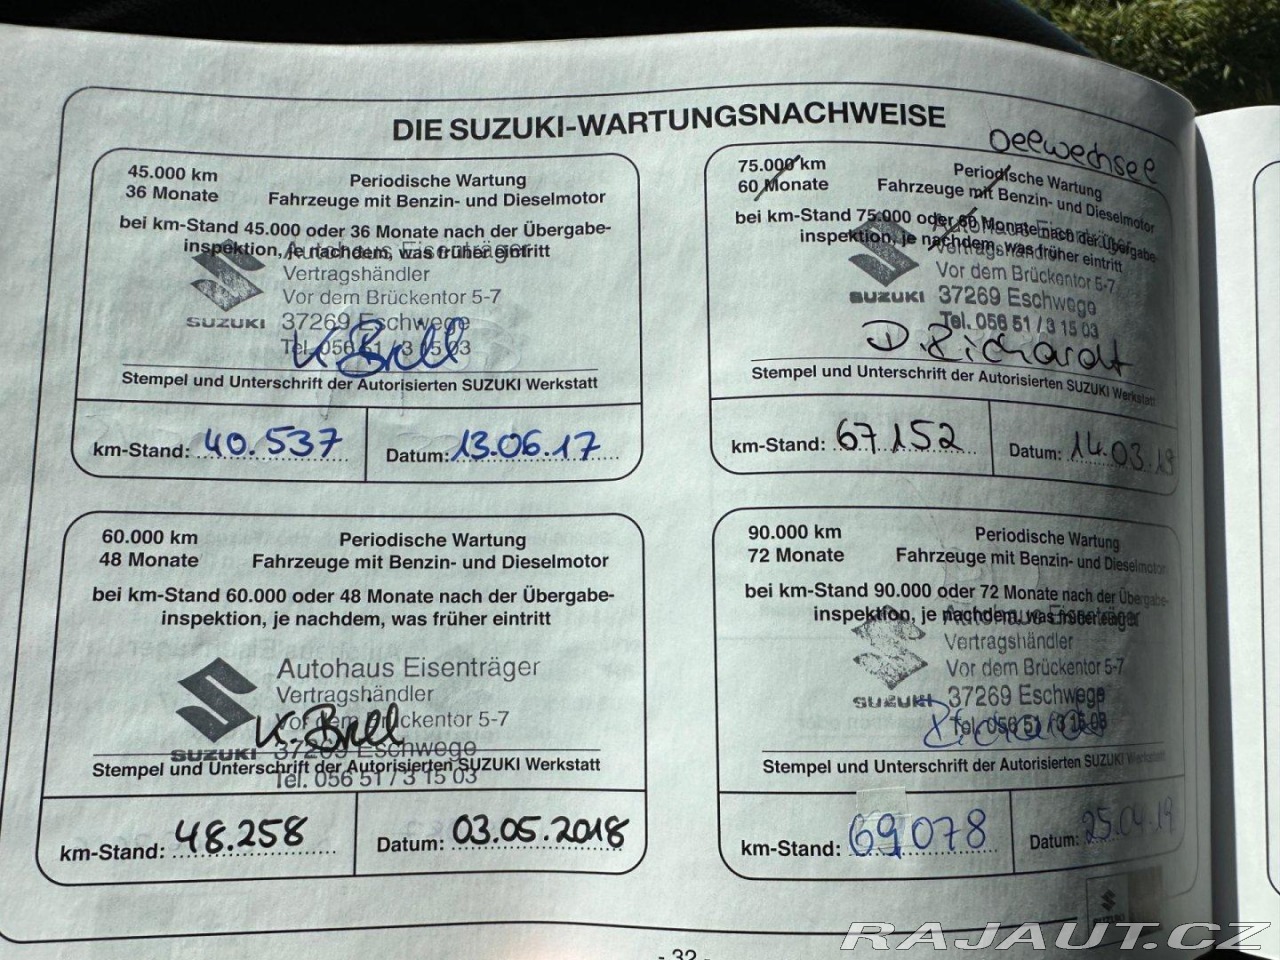 DIE SUZUKI-WARTUNGSNACHWEISE
45.000 km
36 Monate
Periodische Wartung
Fahrzeuge mit Benzin- und Dieselmotor
bei km-Stand 45.000 oder 36 Monate nach der Übergabe-
inspektion, je nachdem, was früher eintritt
Autohaus Eisenträger
Vertragshändler
Vor dem Brückentor 5-7
SUZUKI 37269 Eschwege
Tel. 056 51 / 3 15 03
K. Brill
Stempel und Unterschrift der Autorisierten SUZUKI Werkstatt
km-Stand: 40.537 Datum: 13.06.17
60.000 km
48 Monate
Periodische Wartung
Fahrzeuge mit Benzin- und Dieselmotor
bei km-Stand 60.000 oder 48 Monate nach der Übergabe-
inspektion, je nachdem, was früher eintritt
Autohaus Eisenträger
Vertragshändler
Vor dem Brückentor 5-7
K. Brill
SUZUKI 37269 Eschwege
Stempel und Unterschrift der Autorisierten SUZUKI Werkstatt
Tel. 056 51 / 3 15 03
km-Stand: 48.258 Datum: 03.05.2018
Oelwechsel
75.000 km
60 Monate
Periodische Wartung
Fahrzeuge mit Benzin- und Dieselmotor
bei km-Stand 75.000 oder 60 Monate nach der Übergabe-
inspektion, je nachdem, was früher eintritt
Autohaus Eisenträger
Vertragshändler
Vor dem Brückentor 5-7
SUZUKI 37269 Eschwege
Tel. 056 51 / 3 15 03
D. Richardt
Stempel und Unterschrift der Autorisierten SUZUKI Werkstatt
km-Stand: 67.152 Datum: 14.03.19
90.000 km
72 Monate
Periodische Wartung
Fahrzeuge mit Benzin- und Dieselmotor
bei km-Stand 90.000 oder 72 Monate nach der Übergabe-
inspektion, je nachdem, was früher eintritt
Autohaus Eisenträger
Vertragshändler
Vor dem Brückentor 5-7
SUZUKI 37269 Eschwege
Tel. 056 51 / 3 15 03
Stempel und Unterschrift der Autorisierten SUZUKI Werkstatt
km-Stand: 69078 Datum: 25.04.19
SUZUKI
- 32 -
RAJAUT.CZ